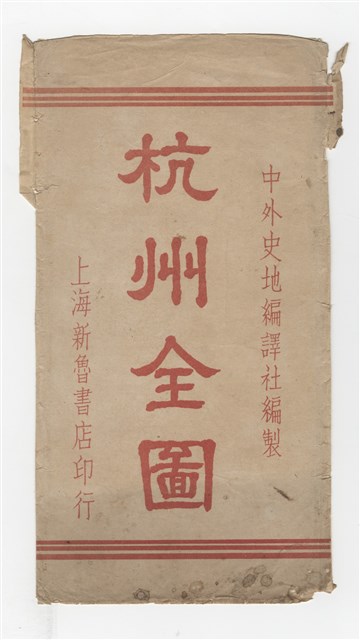 中外史地編譯社編製
杭州全圖
上海新魯書店印行